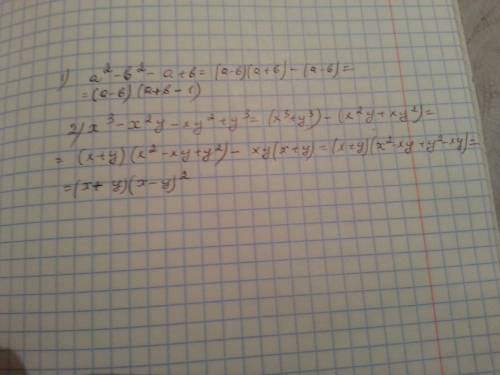 1) a²-b²-a+b=(a-b)(a+b)-(a-b)=
=(a-b)(a+b-1)
2) x³-x²y-xy²+y³=(x³+y³)-(x²y+xy²)=
=(x+y)(x²-xy+y²)-xy(x+y)=(x+y)(x²-xy+y²-xy)=
=(x+y)(x-y)²